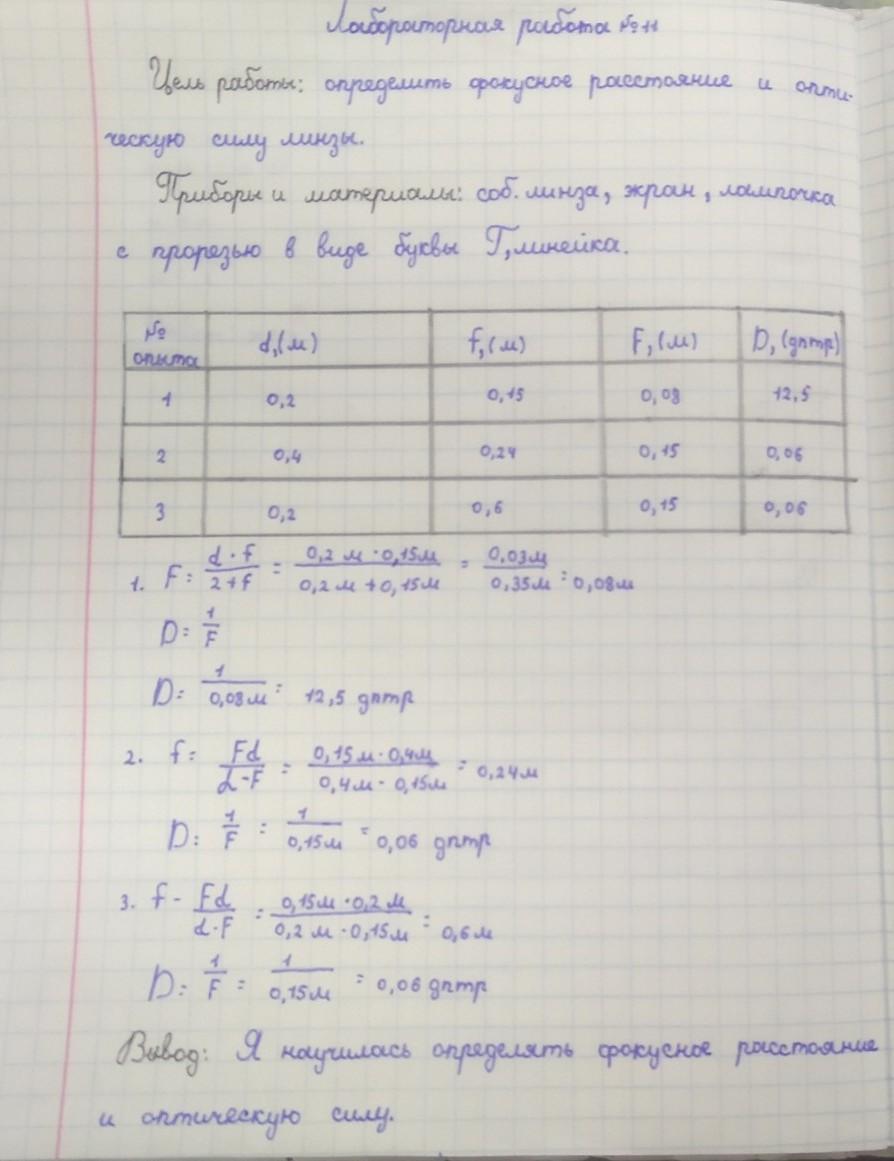 Лабораторная работа №11
Цель работы: определить фокусное расстояние и опти-
ческую силу линзы.
Приборы и материалы: соб. линза, экран, лампочка
с прорезью в виде буквы Г, линейка.
№ опыта d,(м) f,(м) F,(м) D,(дптр)
1 0,2 0,15 0,08 12,5
2 0,4 0,24 0,15 0,06
3 0,2 0,6 0,15 0,06
1. F = d·f / 2+f = 0,2 м · 0,15м / 0,2 м + 0,15м = 0,03м / 0,35м = 0,08м
D = 1/F
D = 1 / 0,08м = 12,5 дптр
2. f = Fd / d-F = 0,15м · 0,4м / 0,4м - 0,15м = 0,24м
D = 1/F = 1 / 0,15м = 0,06 дптр
3. f - Fd / d·F = 0,15м · 0,2 м / 0,2 м · 0,15м = 0,6м
D = 1/F = 1 / 0,15м = 0,06 дптр
Вывод: Я научилась определять фокусное расстояние
и оптическую силу.